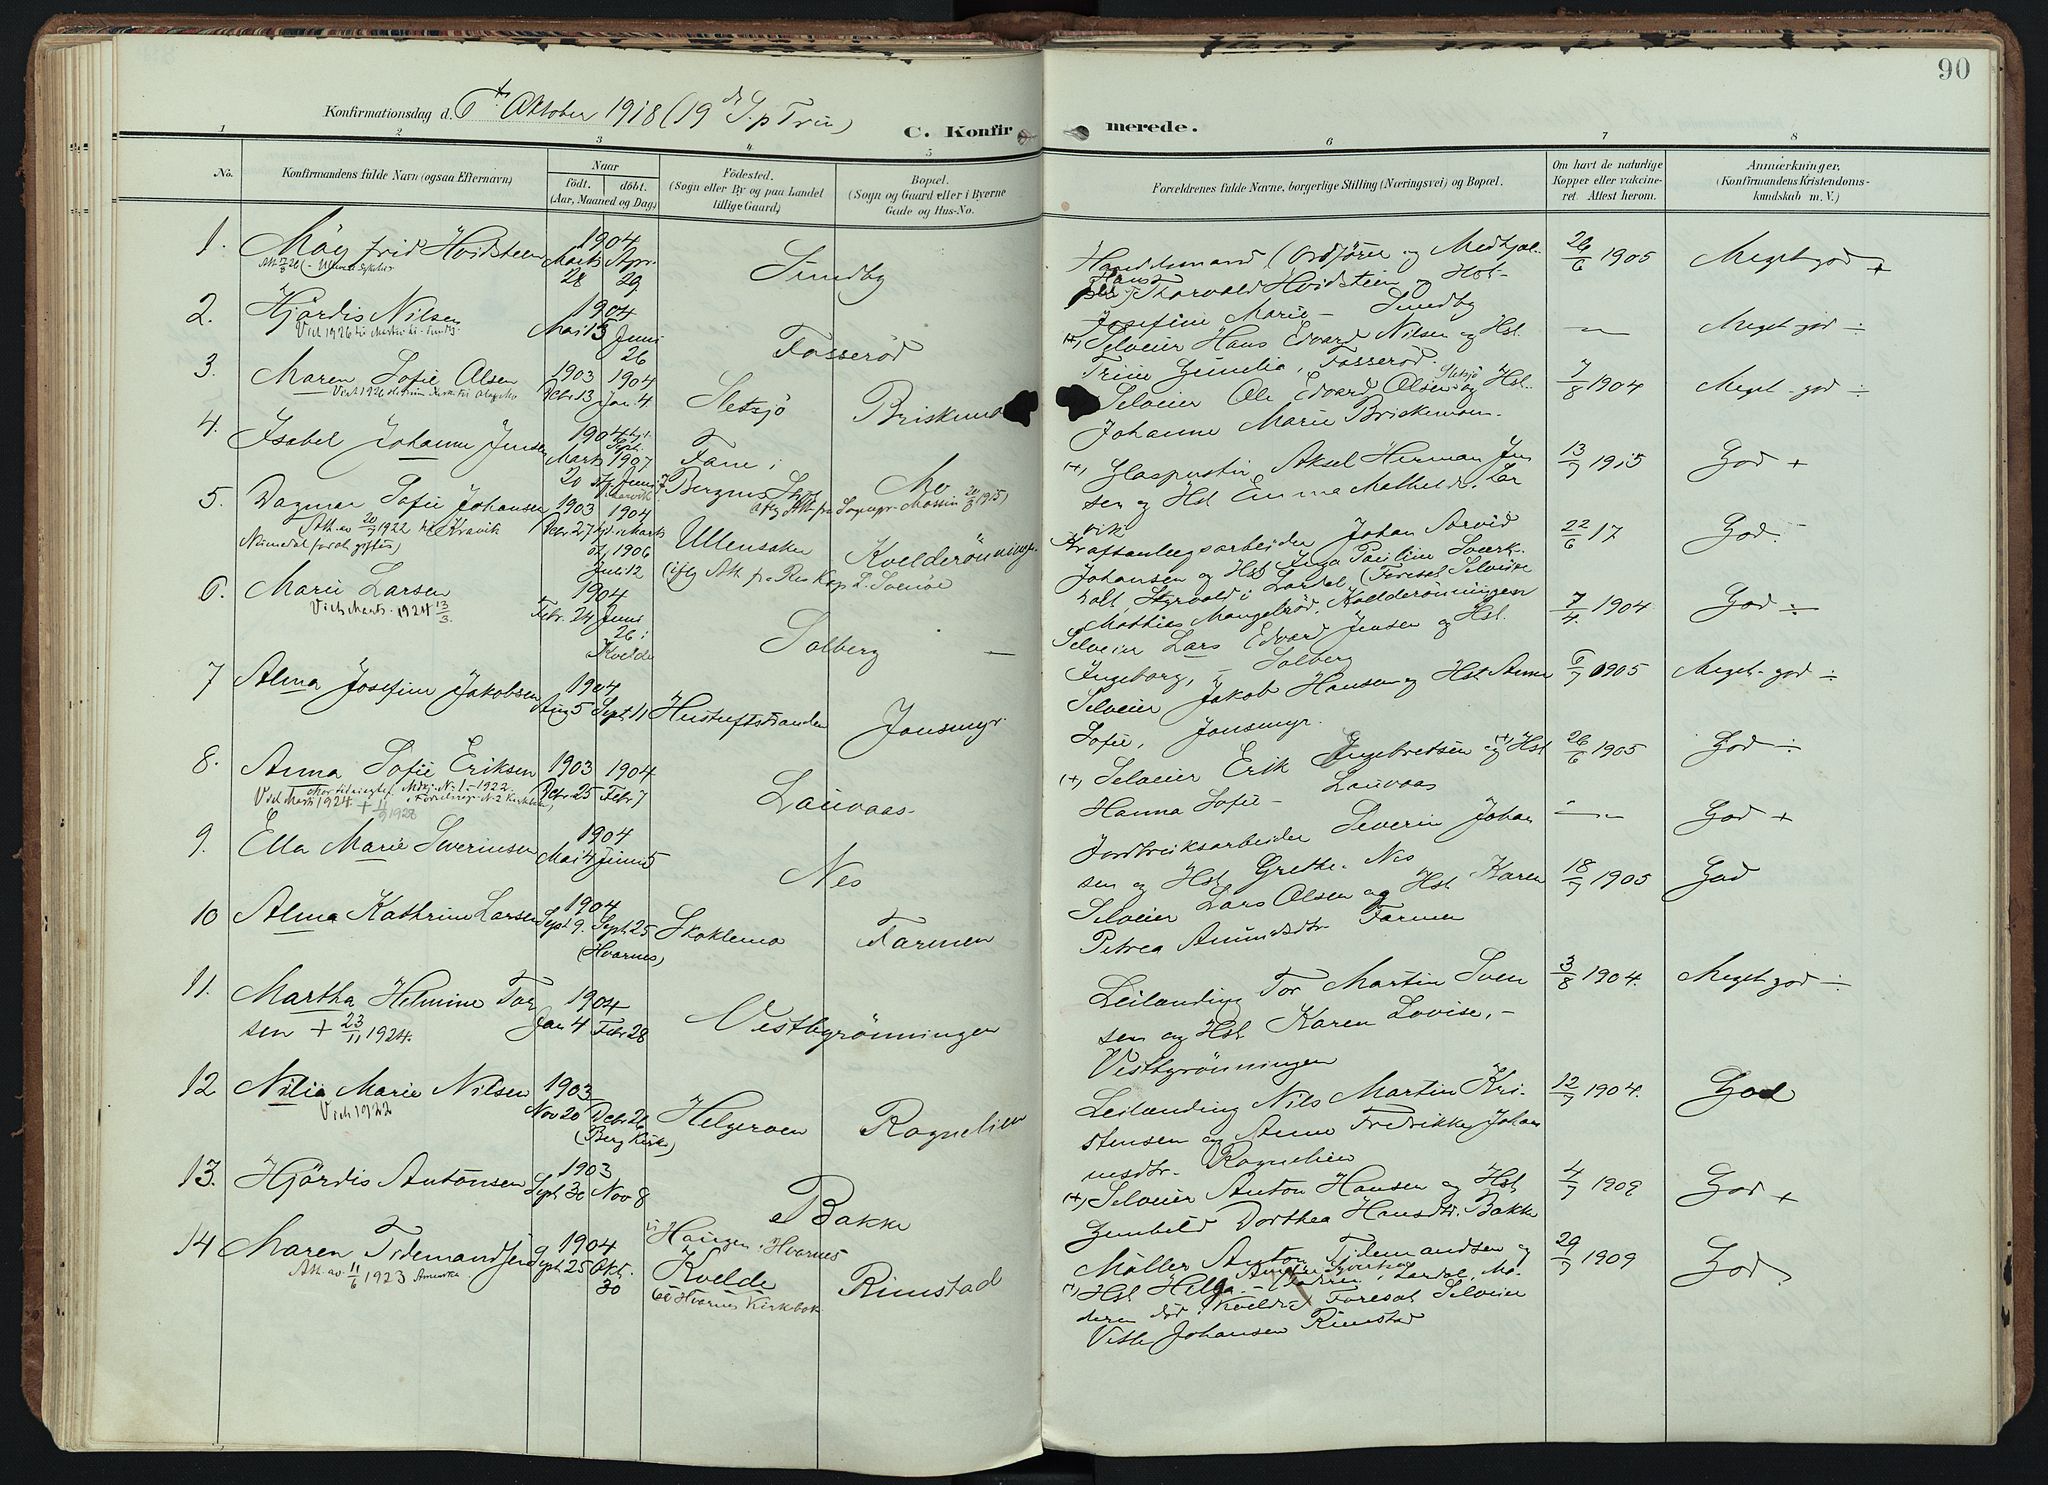 90
Konfirmationsdag d. 6te Oktober 1918 (19de S. p Trin)
C. Konfirmerede.
1 2 3 4 5 6 7 8
No.
Konfirmandens fulde Navn (ogsaa Efternavn)
Naar
født. døbt.
(Aar, Maaned og Dag)
Fødested.
(Sogn eller By og paa Landet
tillige Gaard)
Bopæl.
(Sogn og Gaard eller i Byerne
Gade og Hus-No.
Forældrenes fulde Navne, borgerlige Stilling (Næringsvei) og Bopæl.
Om havt de naturlige
Kopper eller vakcine-
ret. Attest herom.
Anmærkninger.
(Konfirmandens Kristendoms-
kundskab m. V.)
1. Möyfrid Hvidsteen
1904
Marts 28 Apr. 29
Sundby
Handelsmand (Ordförer og
Hans Thorvald Hvidsteen og Hst
Josefine Marie - Sundby
26/6 1905
Meget god +
2. Hjördis Nilsen
1904
Mai 13 Juni 26
Fosseröd
(+) Selveier Hans Edvard Nilsen og Hst.
Trine Gunelia, Fosseröd.
— " —
Meget god ÷
3. Maren Sofie Olsen
1903 1904
Decbr 13 Jan 4
Sletsjö
Briskemo
Selveier Ole Edvard Olsen Sletsjö og Hst.
Johanne Marie Briskemoen.
7/8 1904
Meget god ÷
4. Isabel Johanne Jensen
1904
Marts 20
1907
Fane i
Bergens Stift
Mo
(+) Glaspuster Aksel Herman Jen
sen og Hst Emma Mathilde. Lar
vik
13/7 1915
God +
5. Dagmar Sofie Johansen
Att. av 20/9 1922
Numedal for at giftes)
1903 1904
Decbr 27
1906
Juli 12
Ullensaker
Kvelderönningen
Kraftanlægsarbeider Johan Arvid
Johansen og Hst Inga Pauline Sverk
holt, Styrvold i Lardal (Foresat Selveier
Mathias Mangelröd, Kvelderönningen
22/6 17
God.
6. Marie Larsen
Vied Marts 1924 13/3
1904
Febr. 24 Juni 26 i
Kvelde
Solberg —
Selveier Lars Edvard Jensen og Hst.
Ingeborg, - Solberg
7/4 1904
God ÷
7 Alma Josefine Jakobsen
1904
Aug 5 Sept 11
Hustuftstranden
Jonsmyr
Selveier Jakob Hansen og Hst Anne
Sofie, Jonsmyr.
6/7 1905
Meget god ÷
8. Anna Sofie Eriksen
Vied Marts 1924
1903 1904
Decbr 25 Febr 7
Lauvaas
(+) Selveier Erik Ingebretsen og Hst
Hanna Sofie - Lauvaas
26/6 1905
God ÷
9. Ella Marie Severinsen
1904
Mai 4 Juni 5
Nes
Jordbruksarbeider Severin Johan
sen og Hst Grethe. Nes
— " —
God +
10 Alma Kathrine Larsen
1904
Sept 9. Sept 25
(Hvarnes)
Skoklemo
Farmen
Selveier Lars Olsen og Hst Karen
Petrea Amundsdtr Farmen
18/7 1905
God
11. Martha Helmine Tor
sen + 23/11 1924.
1904
Jan 4 Febr 28
Vestbyrönningen
Leilænding Tor Martin Sven
sen og Hst Karen Lovise, -
Vestbyrönningen
3/8 1904.
Meget god ÷
12 Nilia Marie Nilsen
Vied 1922
1903
Nov 20 Decbr 26
(Berg Kirke)
Helgeroen
Rognelien
Leilænding Nils Martin Kri-
stensen og Anne Fredrikke Johan
nesdtr. Rognelien
12/7 1904.
God
13. Hjördis Antonsen
1903
Sept 30 Nov 8
Bakke
(+) Selveier Anton Hansen og Hst
Gunhild Dorthea Hansdtr. Bakke
4/7 1909
God +
14 Maren Tidemandsen
Att. av 11/6 1923 Amerika
1904
Sept 25 Okt. 30
Haugen i Hvarnes
Kvelde
Hvarnes Kirkebok
Rimstad
Møller Anton Tidemandsen og
Hst Helga Lardal, Mo-
deren död i Kvelde) Foresat Selveier
Vetle Johansen Rimstad
29/7 1909
God